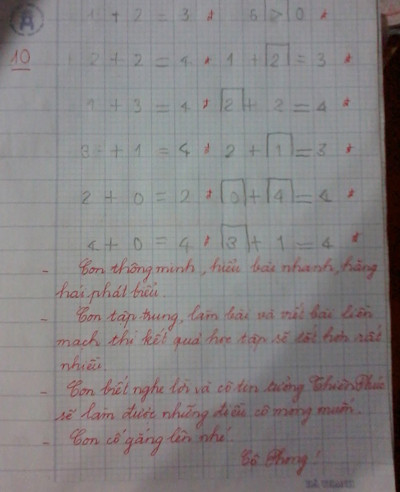 A 1 + 2 = 3 * 6 > 0 *
10 2 + 2 = 4 * 1 + 2 = 3 *
1 + 3 = 4 * 2 + 2 = 4 *
3 + 1 = 4 * 2 + 1 = 3 *
2 + 0 = 2 * 0 + 4 = 4 *
4 + 0 = 4 * 3 + 1 = 4 *
- Con thông minh, hiểu bài nhanh, hăng
hái phát biểu.
- Con tập trung, làm bài và viết bài liền
mạch thì kết quả học tập sẽ tốt hơn rất
nhiều.
- Con biết nghe lời và cô tin tưởng Thiên Phúc
sẽ làm được những điều cô mong muốn.
- Con cố gắng lên nhé
Cô Phong!